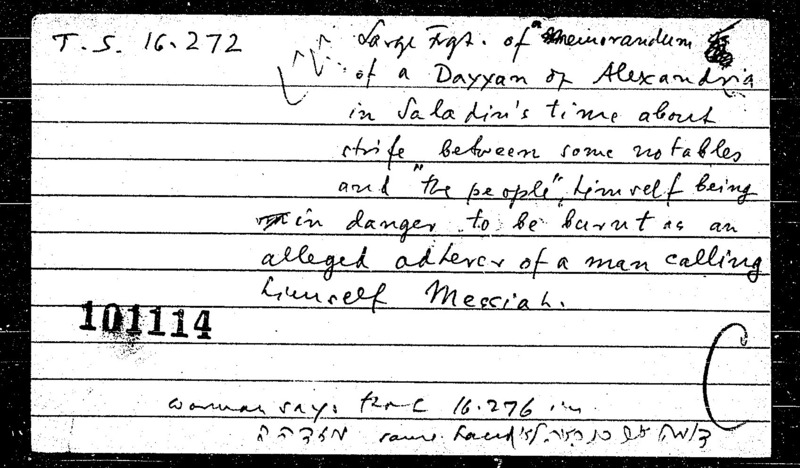 T. S. 16.272
Large Frgt. of "memorandum
of a Dayyan of Alexandria
in Saladin's time about
strife between some notables
and "the people", himself being
in danger to be burnt as an
alleged adherer of a man calling
himself Messiah.
101114
says that 16.276 in
same hand